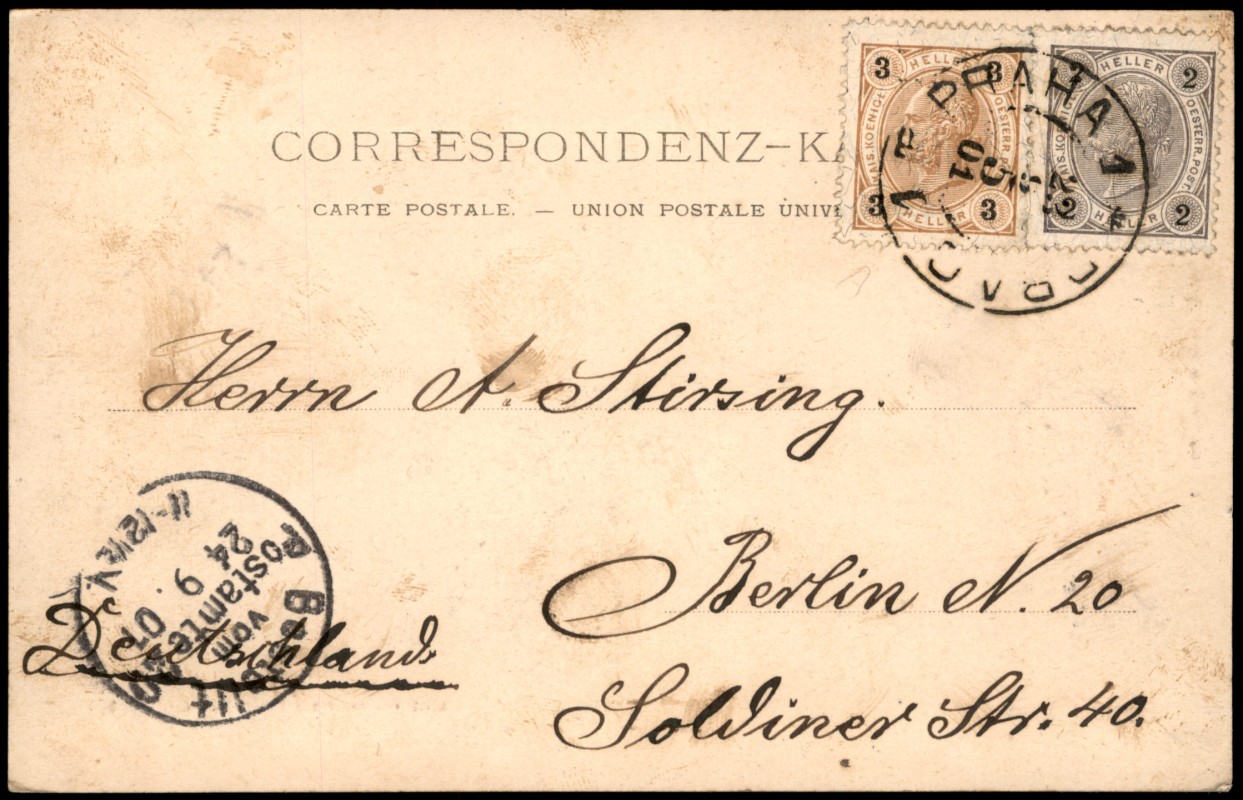 CORRESPONDENZ-KA
CARTE POSTALE. — UNION POSTALE UNIVE
3 HELLER 3
KAIS. KOENIGL. OESTERR. POST.
3 HELLER 3
2 HELLER 2
KAIS. KOENIGL. OESTERR. POST.
2 HELLER 2
PRAHA 1
PRAG 1
01
Herrn A. Stirsing.
Berlin N. 20
Soldiner Str. 40.
Deutschland
Bestellt
vom
Postamte 20
24 9 01
11-12½V